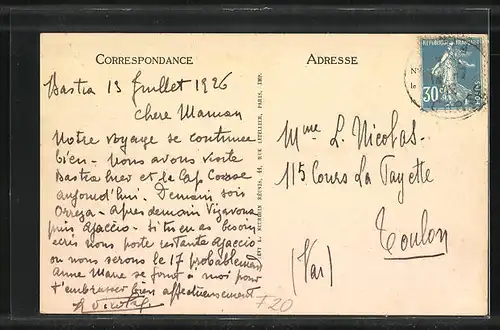 CORRESPONDANCE
Bastia 13 Juillet 1926
Chere Maman
Notre voyage se continue
bien - Nous avons visité
Bastia hier et le Cap Corse
aujourd'hui. Demain soir
après demain Vizavona
puis Ajaccio - Si tu as besoin
écris nous poste restante Ajaccio
où nous serons le 17 probablement
Anne Marie se joint à moi pour
t'embrasser bien affectueusement
ADRESSE
REPUBLIQUE FRANÇAISE
30
Mme L. Nicolas.
115 Cours La Fayette
Toulon
(Var)
F20